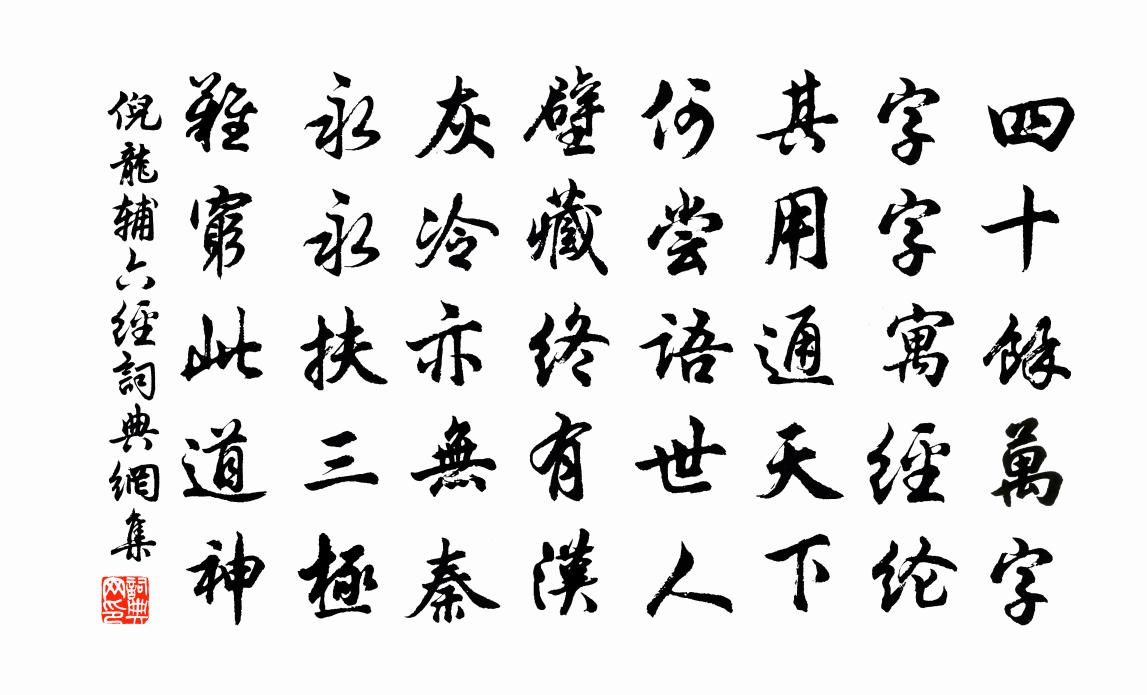 四十餘萬字
字字寓經纶
其用通天下
何尝語世人
壁藏终有漢
灰冷亦無秦
永永扶三極
難窮此道神
倪龍辅六經詞典網集
詞典网印